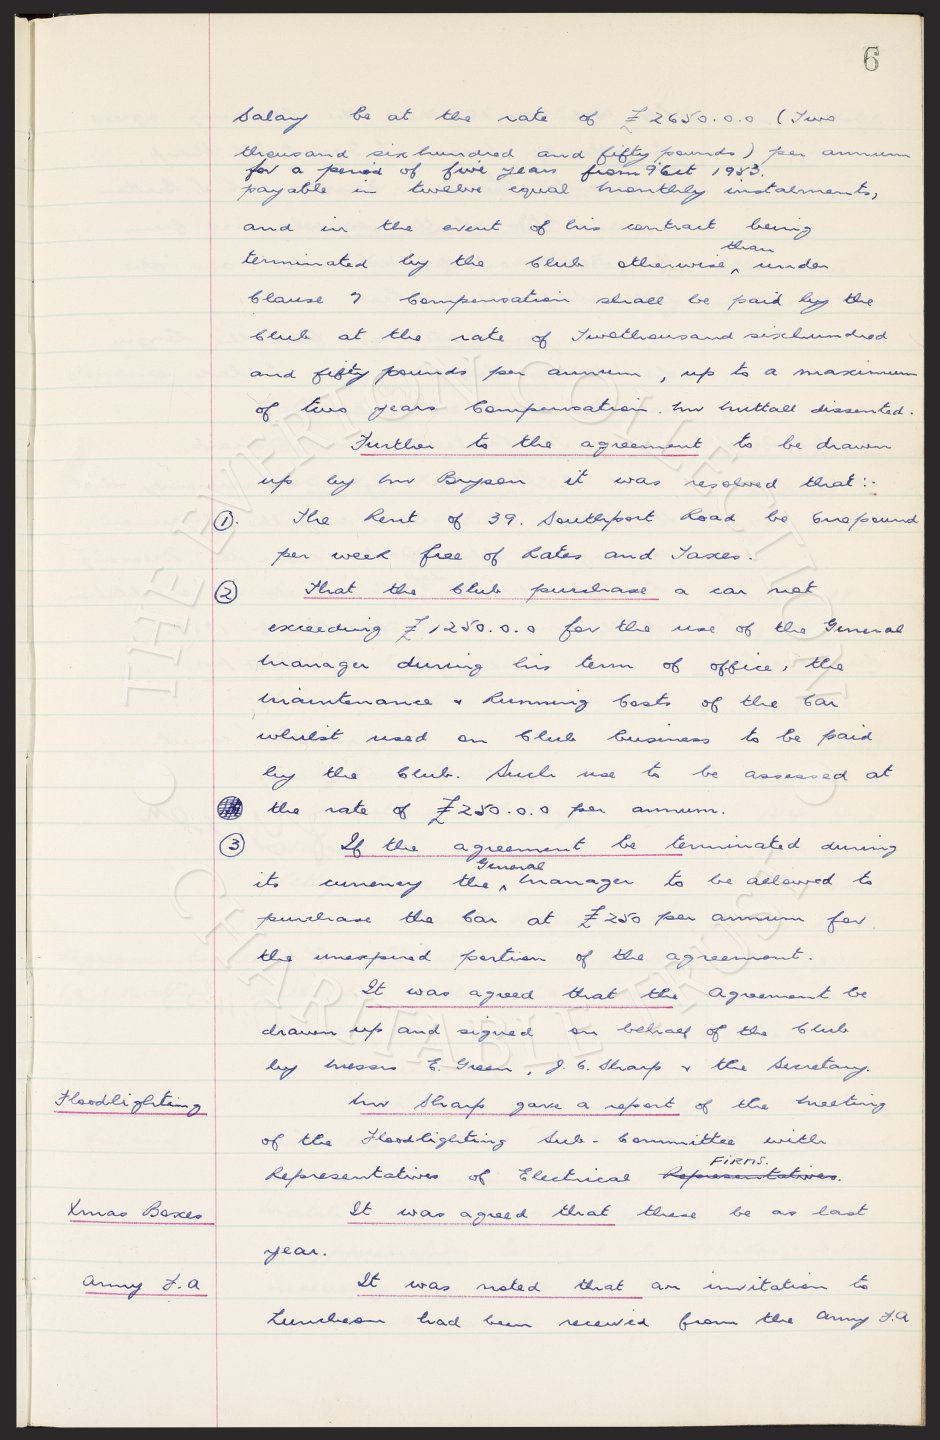 6
Salary be at the rate of £2650.0.0 (Two
thousand sixhundred and fifty pounds) per annum
for a period of five years from 9 Oct 1953.
payable in twelve equal monthly instalments,
and in the event of his contract being
terminated by the Club otherwise than under
Clause 7 Compensation shall be paid by the
Club at the rate of Twothousand sixhundred
and fifty pounds per annum, up to a maximum
of two years Compensation. Mr Nuttall dissented.
Further to the agreement to be drawn
up by Mr Bryson it was resolved that:-
1. The Rent of 39. Southport Road be Onepound
per week free of Rates and Taxes.
2 That the Club purchase a car not
exceeding £1250.0.0 for the use of the General
Manager during his term of office, the
maintenance & Running Costs of the Car
whilst used on Club business to be paid
by the Club. Such use to be assessed at
the rate of £250.0.0 per annum.
3 If the agreement be terminated during
its currency the General Manager to be allowed to
purchase the Car at £250 per annum for
the unexpired portion of the agreement.
It was agreed that the Agreement be
drawn up and signed on behalf of the Club
by Messrs E. Green, J. C. Sharp & the Secretary.
Floodlighting Mr Sharp gave a report of the Meeting
of the Floodlighting Sub-Committee with
Representatives of Electrical Representatives. FIRMS.
Xmas Boxes It was agreed that these be as last
year.
Army F.A It was noted that an invitation to
Luncheon had been received from the Army F.A
THE EVERTON COLLECTION
CHARITABLE TRUST